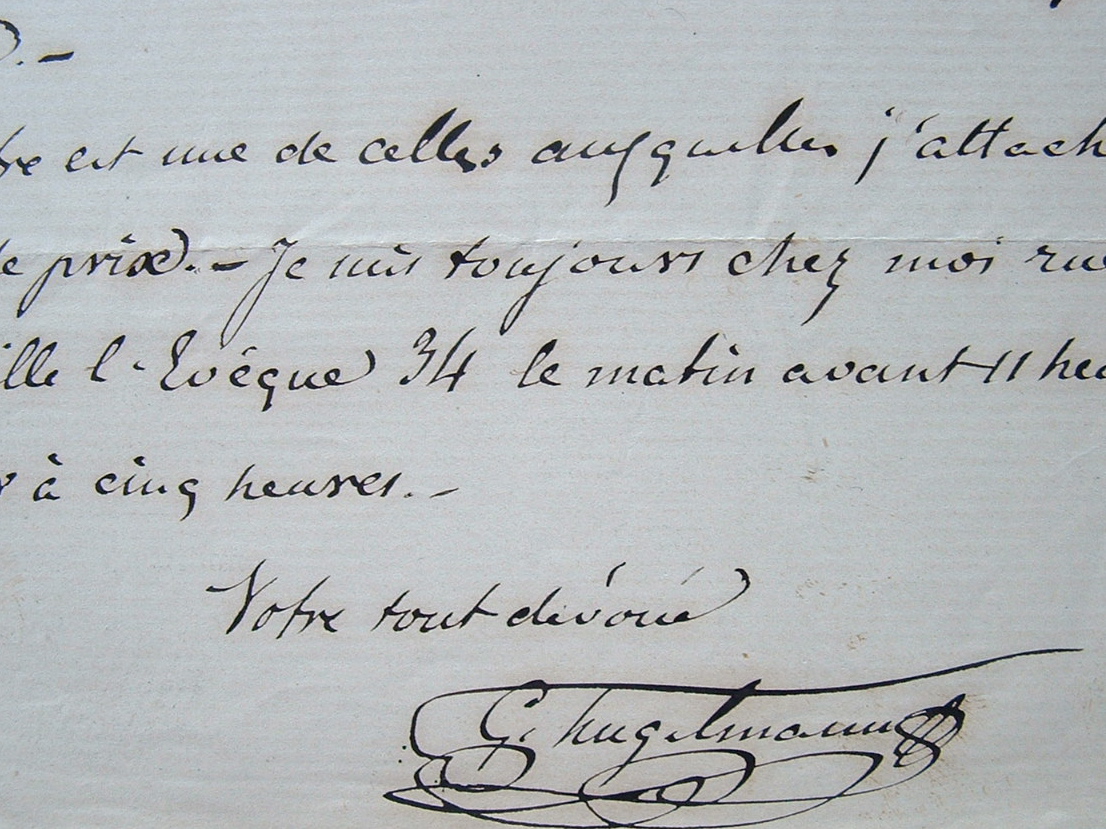 .-
tre est une de celles auxquelles j'attach
de prix. - Je suis toujours chez moi rue
ille l'Evêque 34 le matin avant 11 heu
à cinq heures. -
Votre tout dévoué
G. hugelmann